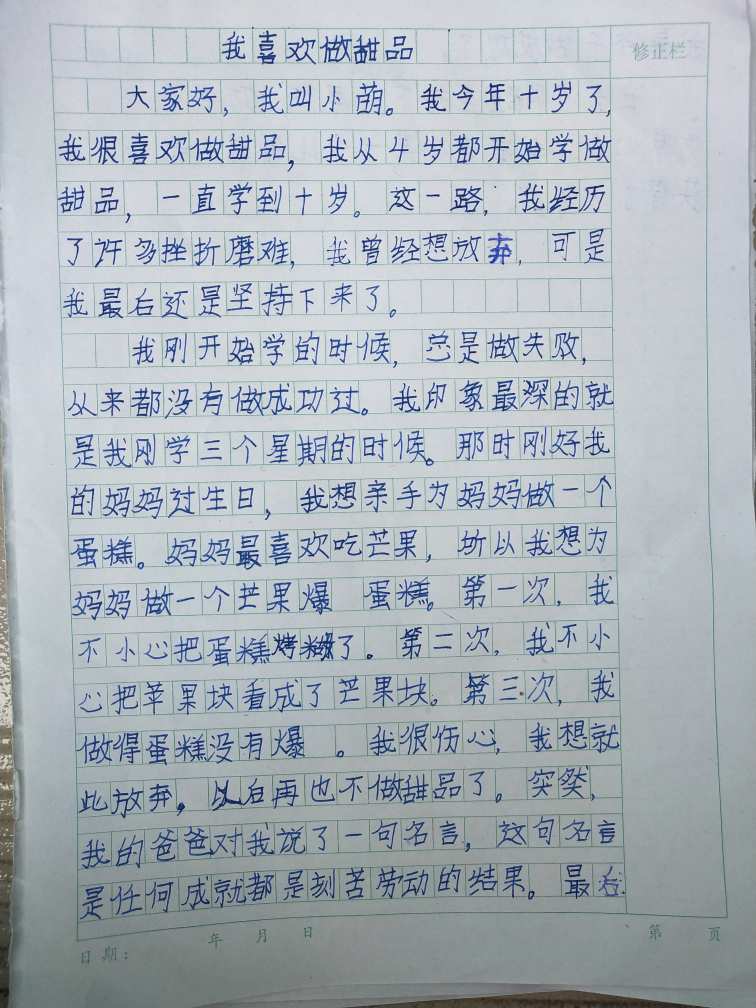 我喜欢做甜品
修正栏
大家好，我叫小萌。我今年十岁了，
我很喜欢做甜品，我从4岁都开始学做
甜品，一直学到十岁。这一路，我经历
了许多挫折磨难，我曾经想放弃，可是
我最后还是坚持下来了。
我刚开始学的时候，总是做失败，
从来都没有做成功过。我印象最深的就
是我刚学三个星期的时候。那时刚好我
的妈妈过生日，我想亲手为妈妈做一个
蛋糕。妈妈最喜欢吃芒果，所以我想为
妈妈做一个芒果爆 蛋糕。第一次，我
不小心把蛋糕烤糊了。第二次，我不小
心把苹果块看成了芒果块。第三次，我
做得蛋糕没有爆 。我很伤心，我想就
此放弃，以后再也不做甜品了。突然，
我的爸爸对我说了一句名言，这句名言
是任何成就都是刻苦劳动的结果。最后
日期： 年 月 日 第 页